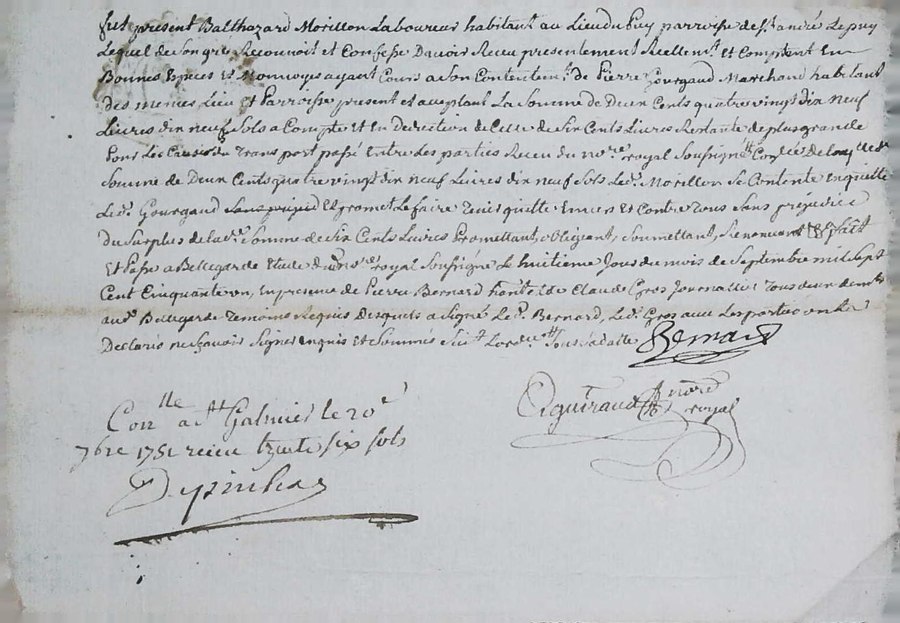 fut present Balthazard Morillon Laboureur habitant au Lieu du Puy parroisse de st. andré Le puy
Lequel de Son gré Reconnoit et Confesse Davoir Receu presentement Reellemt. Et Comptent En
Bonnes Especes Et Monnoye ayant Cours a Son Contentemt. de Pierre Gourgaud Marchand habitant
des memes Lieu Et Parroisse present et aceptant La Somme de Deux Cents quatre vingt dix Neuf
Livres dix neuf Sols a Compte et En Deduction de Celle de Six Cents Livres Restante de plus grande
Pour Les Causes du Transport passé Entre Les parties Receu du nore. royal Soussigné De
Somme de Deux Cents quatre vingt dix neuf Livres dix neuf Sols Led. Morillon Se Contente En quitte
Led. Gourgaud Et promet Le faire Tenir quitte Envers Et Contre Tous Sans prejudice
Du Surplus de lad. Somme de Six Cents Livres Promettant, obligeant, Soumettant, Renoncant &c fait
Et Passé a Bellegarde Etude du nore. royal Soussigné Le huitieme Jour du mois de Septembre mil Sept
Cent Cinquante un, En presence de Pierre Bernard et de Claude Gros Journallier Tous deux demts.
aud. Bellegarde Temoins Requis Desquels a Signé Led. Bernard, Led. Gros avec Les parties ont
Declaré ne Sçavoir Signer Enquis et Sommés Suivt. Lordce. Sous Sa datte Bernard
Conlle a st Galmier le 20e
7bre 1751 receu trente six sols
nore royal